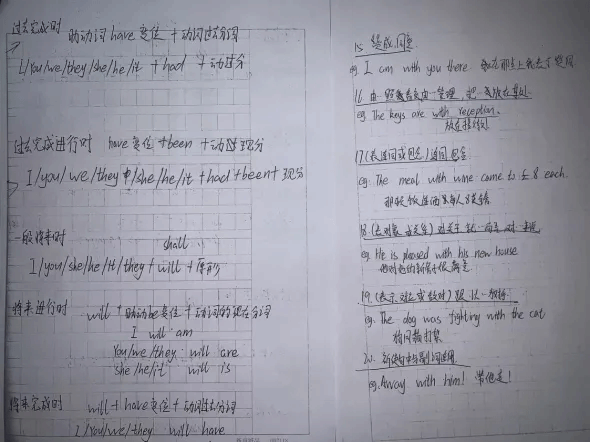 过去完成时 助动词 have 变位 + 动词过去分词
I/You/we/they/she/he/it + had + 动过分
过去完成进行时 have 变位 + been + 动词现分
I/you/we/they/she/he/it + had + been + 现分
一般将来时 shall
I/you/she/he/it/they + will + 原形
将来进行时 will + 助动be变位 + 动词的现在分词
I will am
You/we/they will are
she/he/it will is
将来完成时 will + have变位 + 动词过去分词
I/You/we/they will have
15 赞成,同意
eg. I am with you there.
16 由…
eg. The keys are with reception.
放在接待处
17 (表连同或包含) 连同 包含
eg. The meal with wine came to £8 each.
18
eg. He is pleased with his new house
他对他的新房子很满意
19
eg. The dog was fighting with the cat
狗同猫打架
20.
eg. Away with him! 带他走!